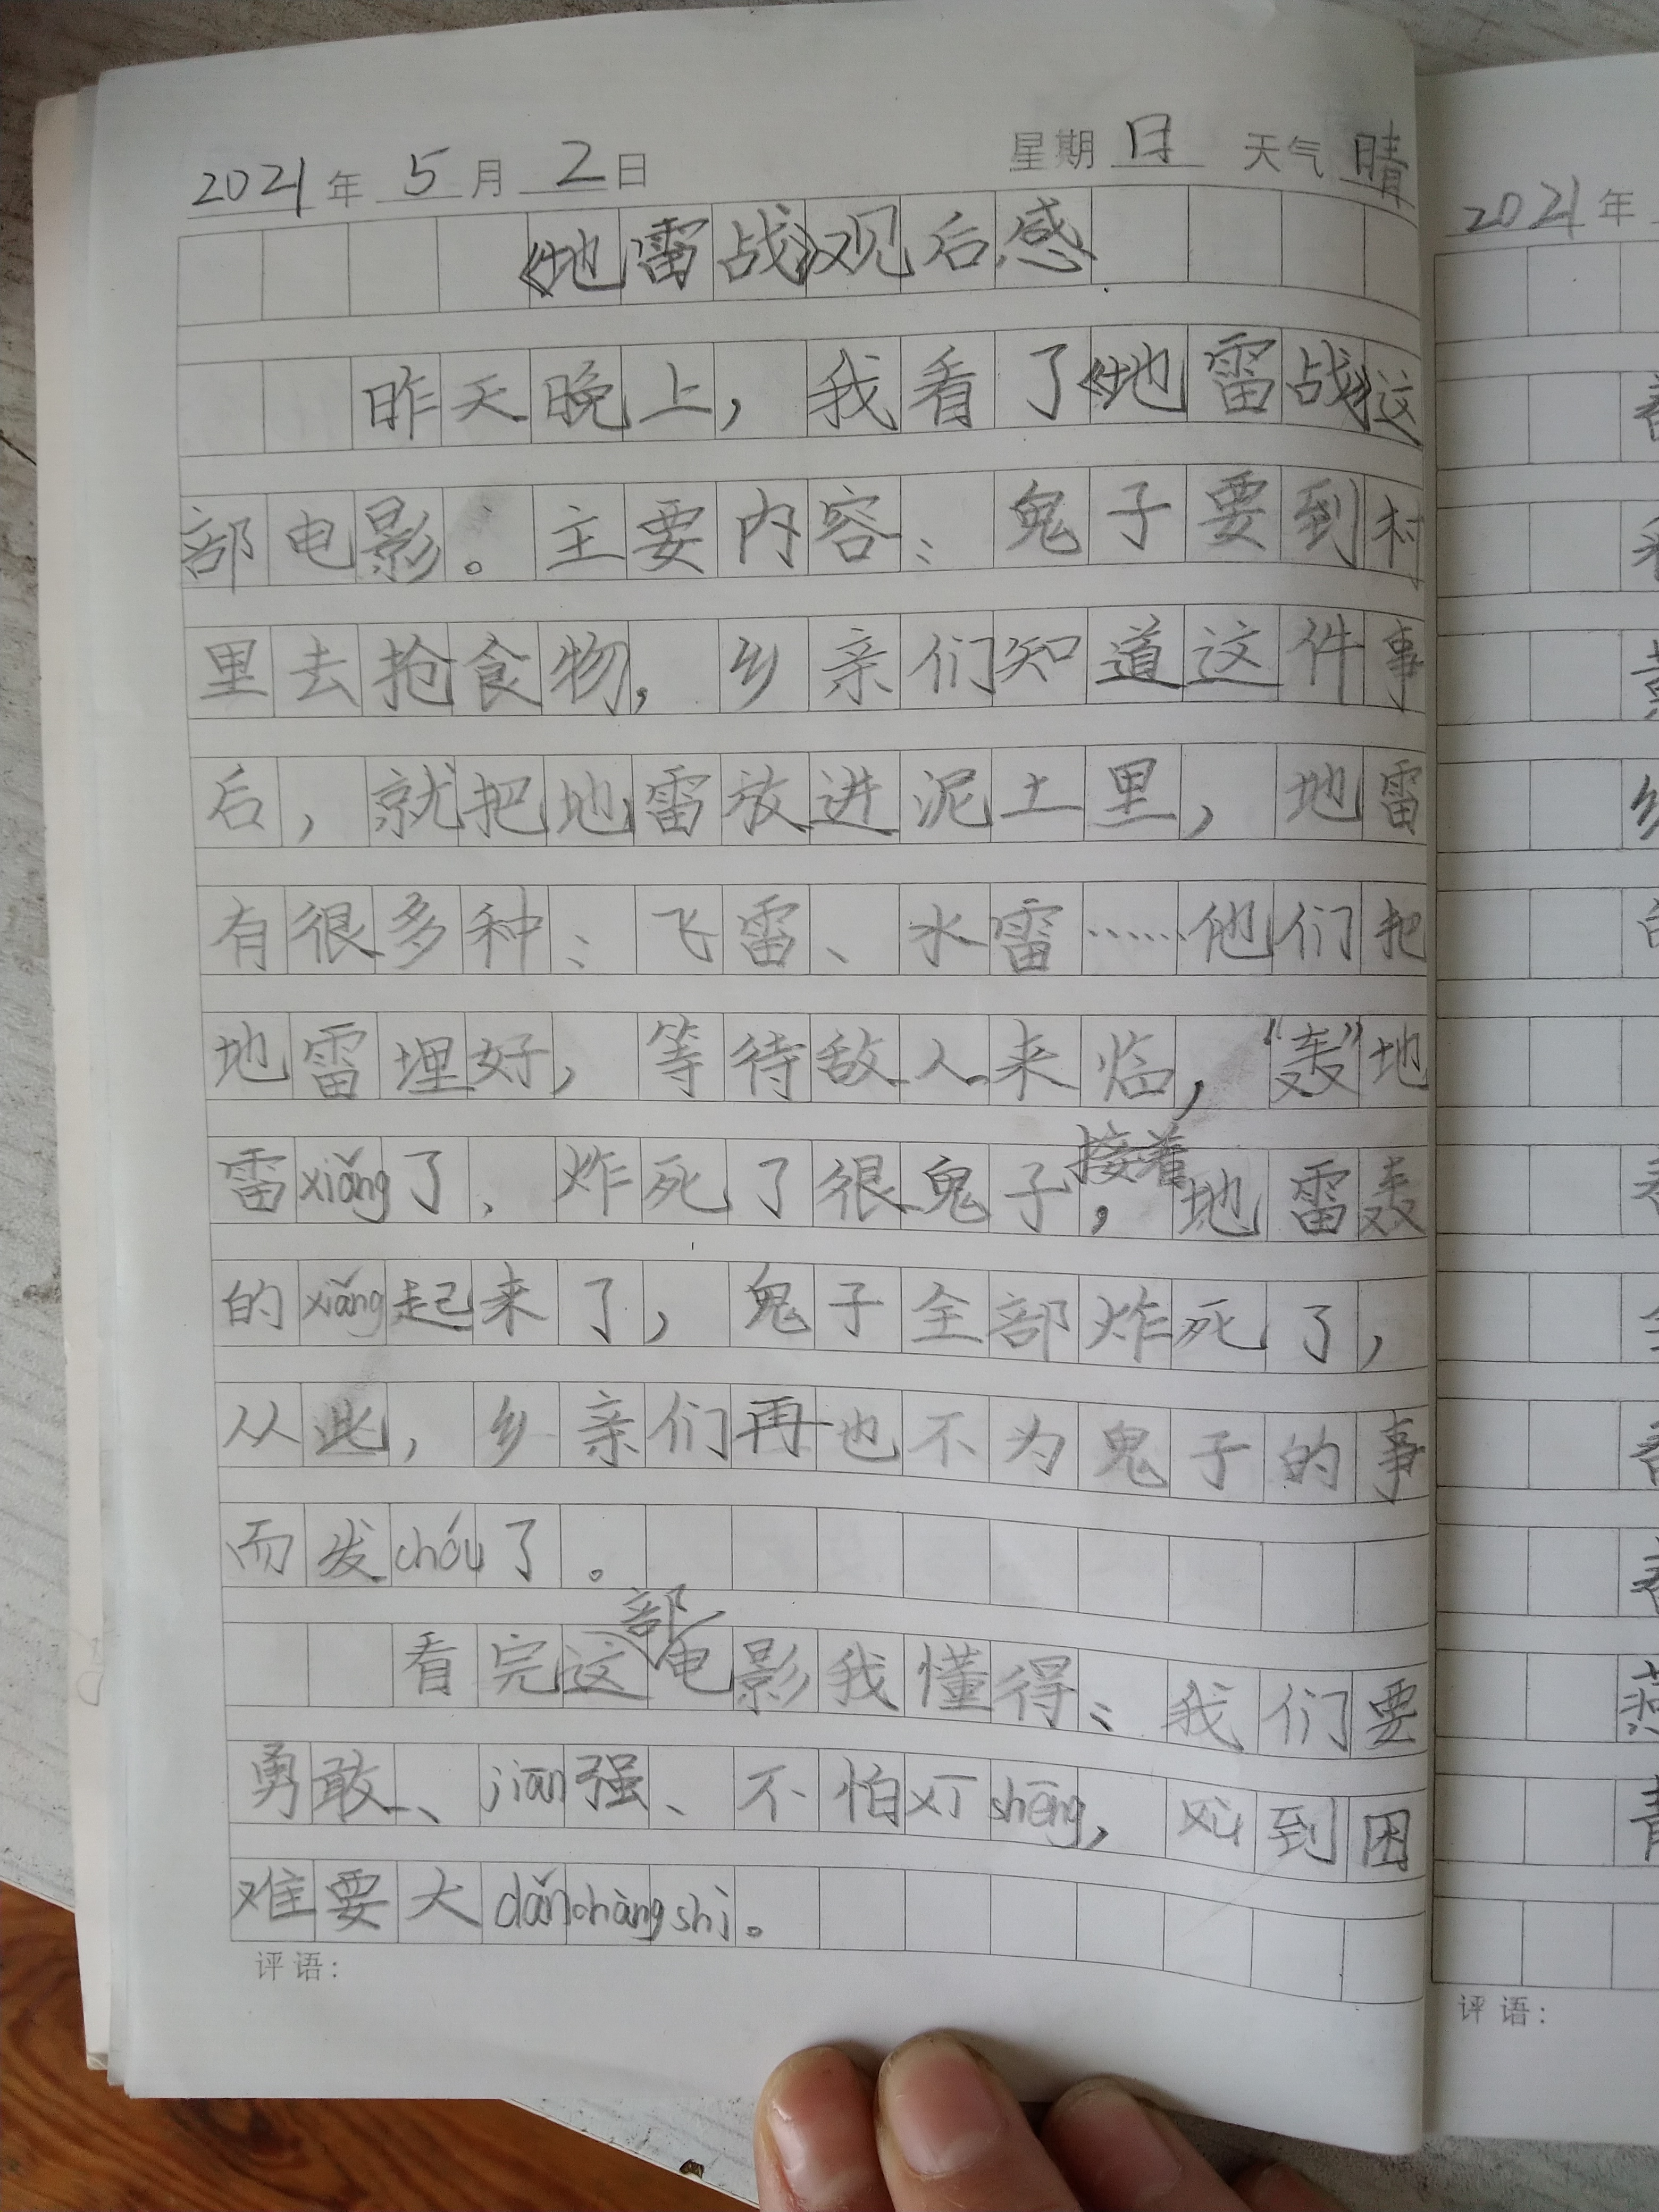 2021年 5月 2日 星期日 天气晴
《地雷战》观后感
昨天晚上，我看了《地雷战》这
部电影。主要内容：鬼子要到村
里去抢食物，乡亲们知道这件事
后，就把地雷放进泥土里，地雷
有很多种：飞雷、水雷……他们把
地雷埋好，等待敌人来临，“轰”地
雷xiǎng了、炸死了很鬼子，接着地雷轰
的xiǎng起来了，鬼子全部炸死了，
从此，乡亲们再也不为鬼子的事
而发chóu了。
看完这部电影我懂得：我们要
勇敢、jiān强、不怕xī shēng，到困
难要大dǎnchàngshi。
评语：
2021年
评语：